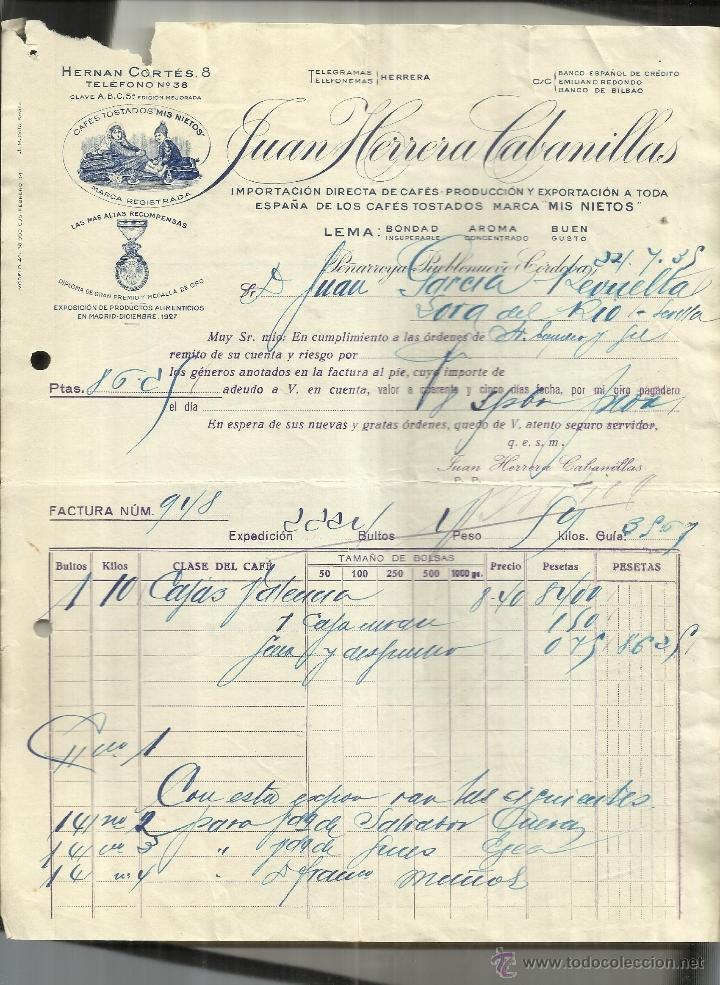 HERNAN CORTÉS, 8
TELÉFONO Nº 38
CLAVE A.B.C. 5ª EDICIÓN MEJORADA
TELEGRAMAS
TELEFONEMAS HERRERA
C/C BANCO ESPAÑOL DE CRÉDITO
EMILIANO REDONDO
BANCO DE BILBAO
CAFÉS TOSTADOS "MIS NIETOS"
MARCA REGISTRADA
Juan Herrera Cabanillas
IMPORTACIÓN DIRECTA DE CAFÉS-PRODUCCIÓN Y EXPORTACIÓN A TODA
ESPAÑA DE LOS CAFÉS TOSTADOS MARCA "MIS NIETOS"
LEMA: BONDAD INSUPERABLE AROMA CONCENTRADO BUEN GUSTO
LAS MAS ALTAS RECOMPENSAS
DIPLOMA DE GRAN PREMIO Y MEDALLA DE ORO
EXPOSICIÓN DE PRODUCTOS ALIMENTICIOS
EN MADRID-DICIEMBRE, 1927
Peñarroya-Pueblonuevo (Córdoba), 7. 35
Sr. D Juan García Revuelta
Lora del Rio - Sevilla
Muy Sr. mío: En cumplimiento a las órdenes de
remito de su cuenta y riesgo por
los géneros anotados en la factura al pie, cuyo importe de
Ptas. 86 25 adeudo a V. en cuenta, valor a cuarenta y cinco días fecha, por mi giro pagadero
el día
En espera de sus nuevas y gratas órdenes, quedo de V. atento seguro servidor,
q. e. s. m.
Juan Herrera Cabanillas
P. P.
FACTURA NÚM. 948
Expedición Bultos 1 Peso kilos. Guía:
Bultos Kilos CLASE DEL CAFÉ TAMAÑO DE BOLSAS Precio Pesetas PESETAS
50 100 250 500 1000 gs.
1 10 Cafés 8.40 84 00
1 Caja 1 50
y despacho 0 75 86 25
nº 1
Con esta expon van las siguientes.
1 nº 2 para Salvador
1 3 "
1 4 " D Muñoz
www.todocoleccion.net